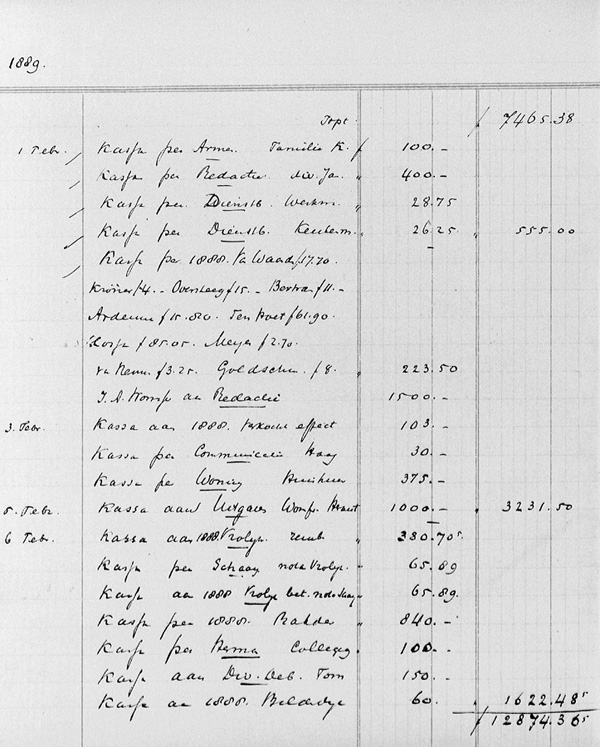 1889.
Trpt. f 7465.38
1 Febr. Kassa per Armen Familie K. f 100.-
Kassa per Redactie div. Ja. " 400.-
Kassa per Dienstb. Werkm. " 28.75
Kassa per Dienstb. Keukenm. " 26.25 " 555.00
Kassa per 1888. Va Waard f 17.70.
Kröner f 4.- Oversteeg f 15.- Bertram f 11.-
f 15.80. Ten Hoet f 61.90
f 85.05. Meyer f 2.70.
f 3.25. Goldschm. f 8. " 223.50
J. A. Wormser aan Redactie 1500.-
3. Febr. Kassa aan 1888. Verkocht effect " 103.-
Kassa per Communicatie Haag " 30.-
Kassa per Woning Huishuur " 375.-
5. Febr. Kassa aan Uitgaven Wormser " 1000.- " 3231.50
6 Febr. Kassa aan 1888 Vrolyk. remb " 380.70⁵
Kassa per Schaay nota Vrolyk. " 65.89
Kassa aan 1888 Vrolyk bet. nota Schaay " 65.89.
Kassa per 1888. Rahder " 840.-
Kassa per Herma Collegeg. " 100.-
Kassa aan Div. Deb. Tom 150.-
Kassa aan 1888. Bilderdyk 60. " 1622.48⁵
f 12874.36⁵